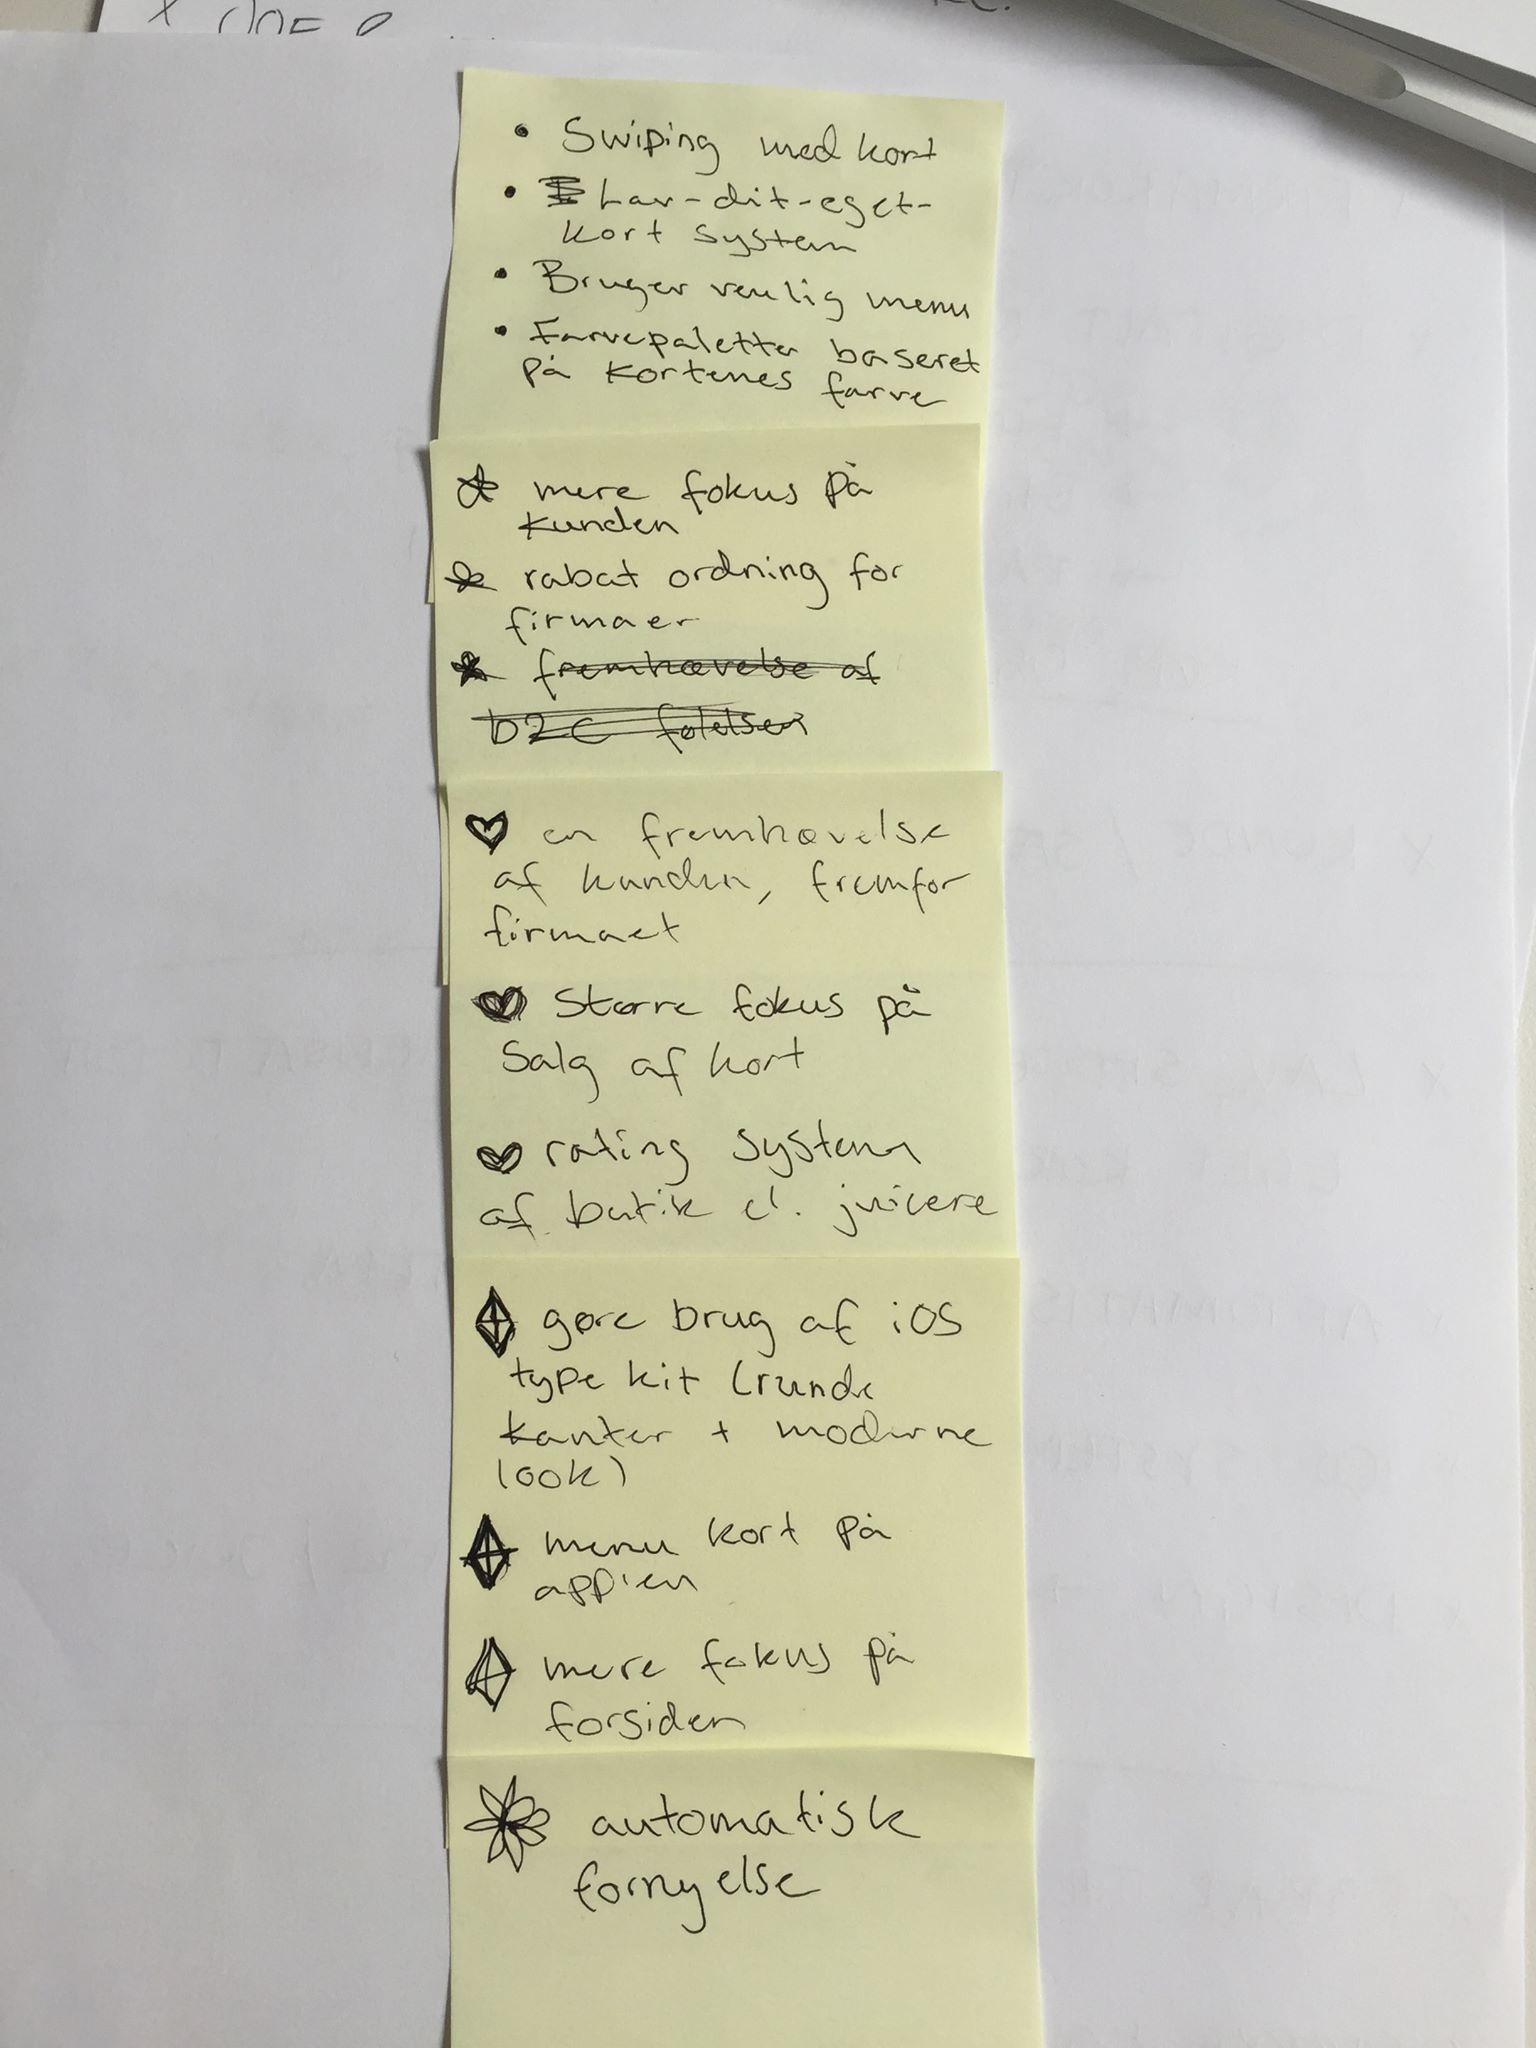 • Swiping med kort
• Lav-dit-eget-
kort system
• Bruger venlig menu
• Farvepaletter baseret
på kortenes farve
mere fokus på
kunden
rabat ordning for
firmaer
fremhævelse af
b2c følelsen
en fremhævelse
af kunden, fremfor
firmaet
Større fokus på
Salg af kort
rating system
af butik el. juicere
gøre brug af iOS
type kit (runde
kanter + moderne
look)
menu kort på
app'en
mere fokus på
forsiden
automatisk
fornyelse